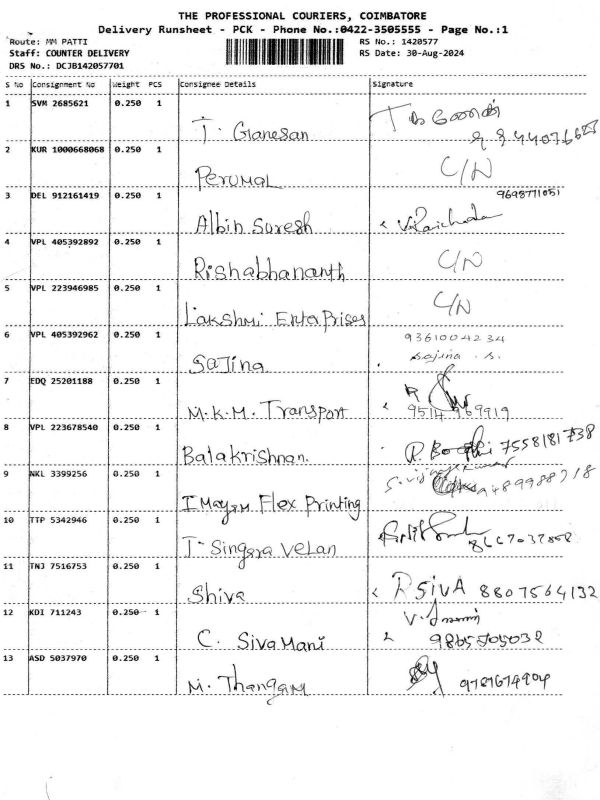 THE PROFESSIONAL COURIERS, COIMBATORE
Delivery Runsheet - PCK - Phone No.:0422-3505555 - Page No.:1
Route: MM PATTI
RS No.: 1420577
Staff: COUNTER DELIVERY
RS Date: 30-Aug-2024
DRS No.: DCJB142057701
S No Consignment No Weight PCS Consignee Details Signature
1 SVM 2685621 0.250 1
T. Ganesan
2 KUR 1000668068 0.250 1
Perumal C/N
3 DEL 912161419 0.250 1 9698771051
Albin Suresh
4 VPL 405392892 0.250 1
Rishabhananth C/N
5 VPL 223946985 0.250 1
Lakshmi Enterprises C/N
6 VPL 405392962 0.250 1 9361004234
Sajina sajina . s.
7 EDQ 25201188 0.250 1
M.K.M. Transport 9514 969919
8 VPL 223678540 0.250 1
Balakrishnan. 7558181738
9 NKL 3399256 0.250 1
Imayam Flex Printing
10 TTP 5342946 0.250 1
T. Singara Velan
11 TNJ 7516753 0.250 1
Shiva P SivA 8807564132
12 KDI 711243 0.250 1
C. Siva Mani 9865505032
13 ASD 5037970 0.250 1
M. Thangam 9787674904